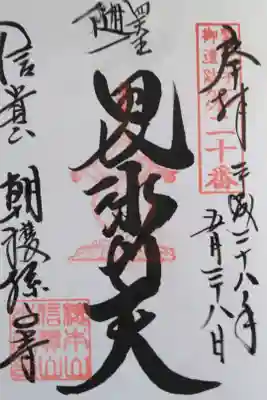 奉拝 平成二十八年
五月二十八日
二十番
毘沙門天
信貴山 朝護孫子寺
総本山
信貴山